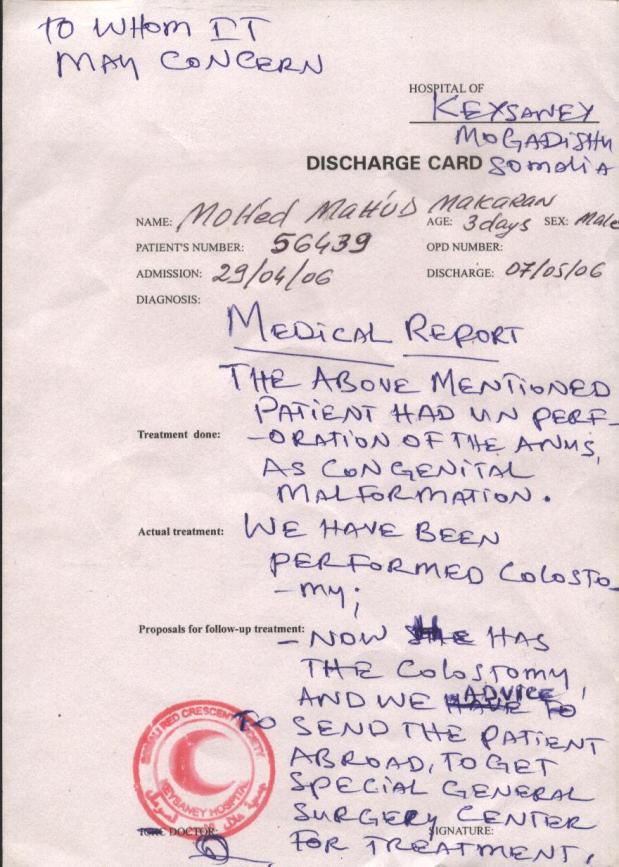 TO WHOM IT
MAY CONCERN
HOSPITAL OF
KEYSANEY
MOGADISHU
SOMALIA
DISCHARGE CARD
NAME: MOHed MAHUD MAKARAN
AGE: 3 days SEX: Male
PATIENT'S NUMBER: 56439 OPD NUMBER:
ADMISSION: 29/04/06 DISCHARGE: 07/05/06
DIAGNOSIS:
MEDICAL REPORT
THE ABOVE MENTIONED
PATIENT HAD UN PERF-
Treatment done: -ORATION OF THE ANUS,
AS CONGENITAL
MALFORMATION.
Actual treatment: WE HAVE BEEN
PERFORMED COLOSTO-
-MY;
Proposals for follow-up treatment: - NOW HE HAS
THE COLOSTOMY
AND WE ADVICE,
TO SEND THE PATIENT
ABROAD, TO GET
SPECIAL GENERAL
SURGERY CENTER
FOR TREATMENT.
SOMALI RED CRESCENT SOCIETY
KEYSANEY HOSPITAL
DOCTOR: SIGNATURE: